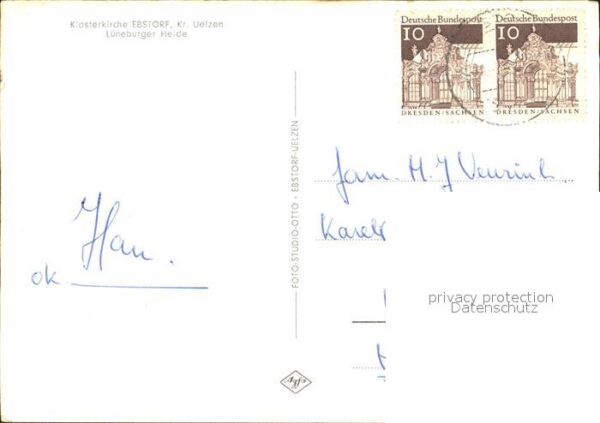 Klosterkirche EBSTORF, Kr. Uelzen
Lüneburger Heide
Deutsche Bundespost
10
DRESDEN/SACHSEN
Deutsche Bundespost
10
DRESDEN/SACHSEN
FOTO-STUDIO-OTTO · EBSTORF-UELZEN
Agfa
ok.
Fam. M. J
privacy protection
Datenschutz